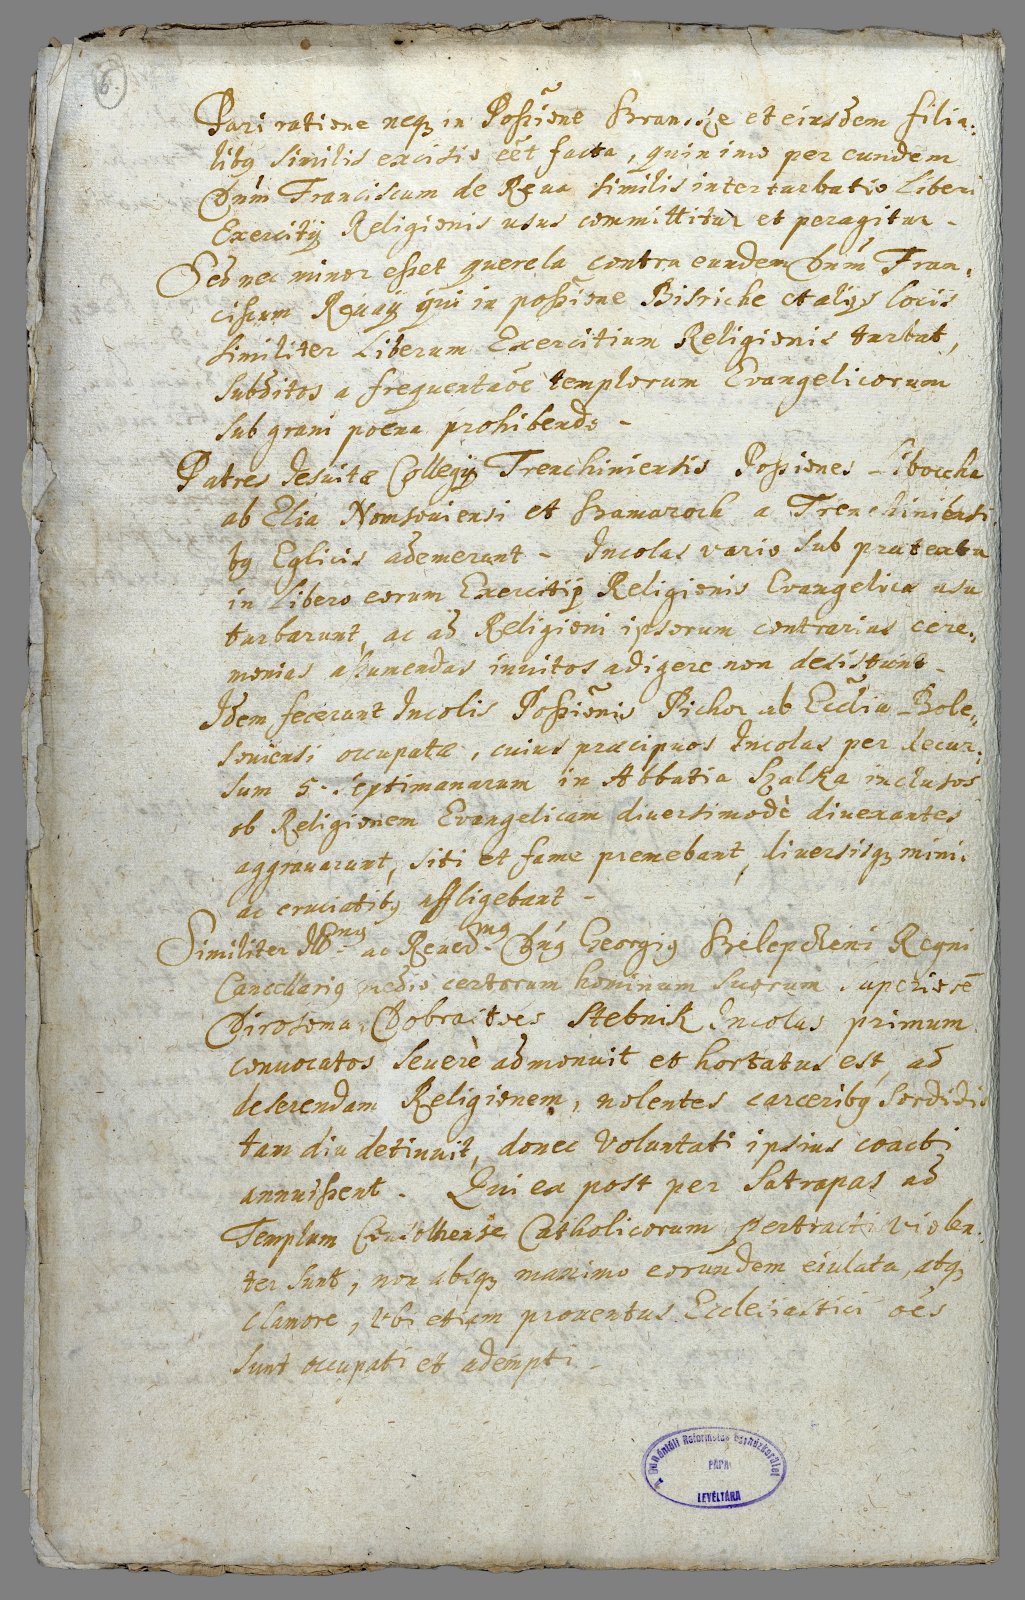 6.
Pari ratione neq₃ in Possĩone et eiusdem filia,
libꝫ similis excisio eēt facta, quin imo per eundem
Dnm̃ Franciscum de Reua similis interturbatio Liberi
Exercitÿ Religionis usus committitur et peragitur –
Sed nec minor esset querela contra eundem Dnm̃ Fran,
ciscum Reuaÿ qui in possĩone Bisriche et alÿs locis
similiter Liberum Exercitium Religionis turbat,
subditos a frequentaõe templorum Evangelicorum
sub graui poena prohibendo –
Patres Jesuitæ Collegÿ Trenchiniensis Possiones
ab Elia et a Trenchiniensi
bꝫ Eglicis ademerunt – Incolas vario sub prætextu
in Libero eorum Exercitÿ Religionis Evangelica usu
turbarunt, ac ad Religioni ipsorum contrarias cere,
monias assumendas inuitos adigere non desistunt –
Idem fecerunt Incolis Possĩonis Pichor ab Eccl̃ia Bole,
soniensi occupatæ, cuius præcipuos Incolas per decur,
sum 5. Septimanarum in Abbatia Szalka inclusos
ob Religionem Evangelicam diuersimodè diuexantes
aggrauarunt, siti et fame premebant, diuersisq₃ minis
ac cruciatibꝫ affligebant –
Similiter Illmꝫ ac Reuerdmꝫ Dnꝫ Georgiꝫ Szelepcheni Regni
Cancellariꝫ medio certorum hominum suorum superiore
Stebnik Incolas primum
conuocatos seuerè admonuit et hortatus est, ad
deserendam Religionem, nolentes carceribꝫ sordidis
tam diu detinuit, donec voluntati ipsius coacti
annuissent. Qui ex post per Satrapas ad
Templum Catholicorum pertracti violen,
ter sunt, non absq₃ maximo eorundem eiulatu, atq₃
clamore, vbi etiam prouentus Ecclesiastici oẽs
sunt occupati et adempti –
A Dunántúli Református Egyházkerület
PÁPA
LEVÉLTÁRA